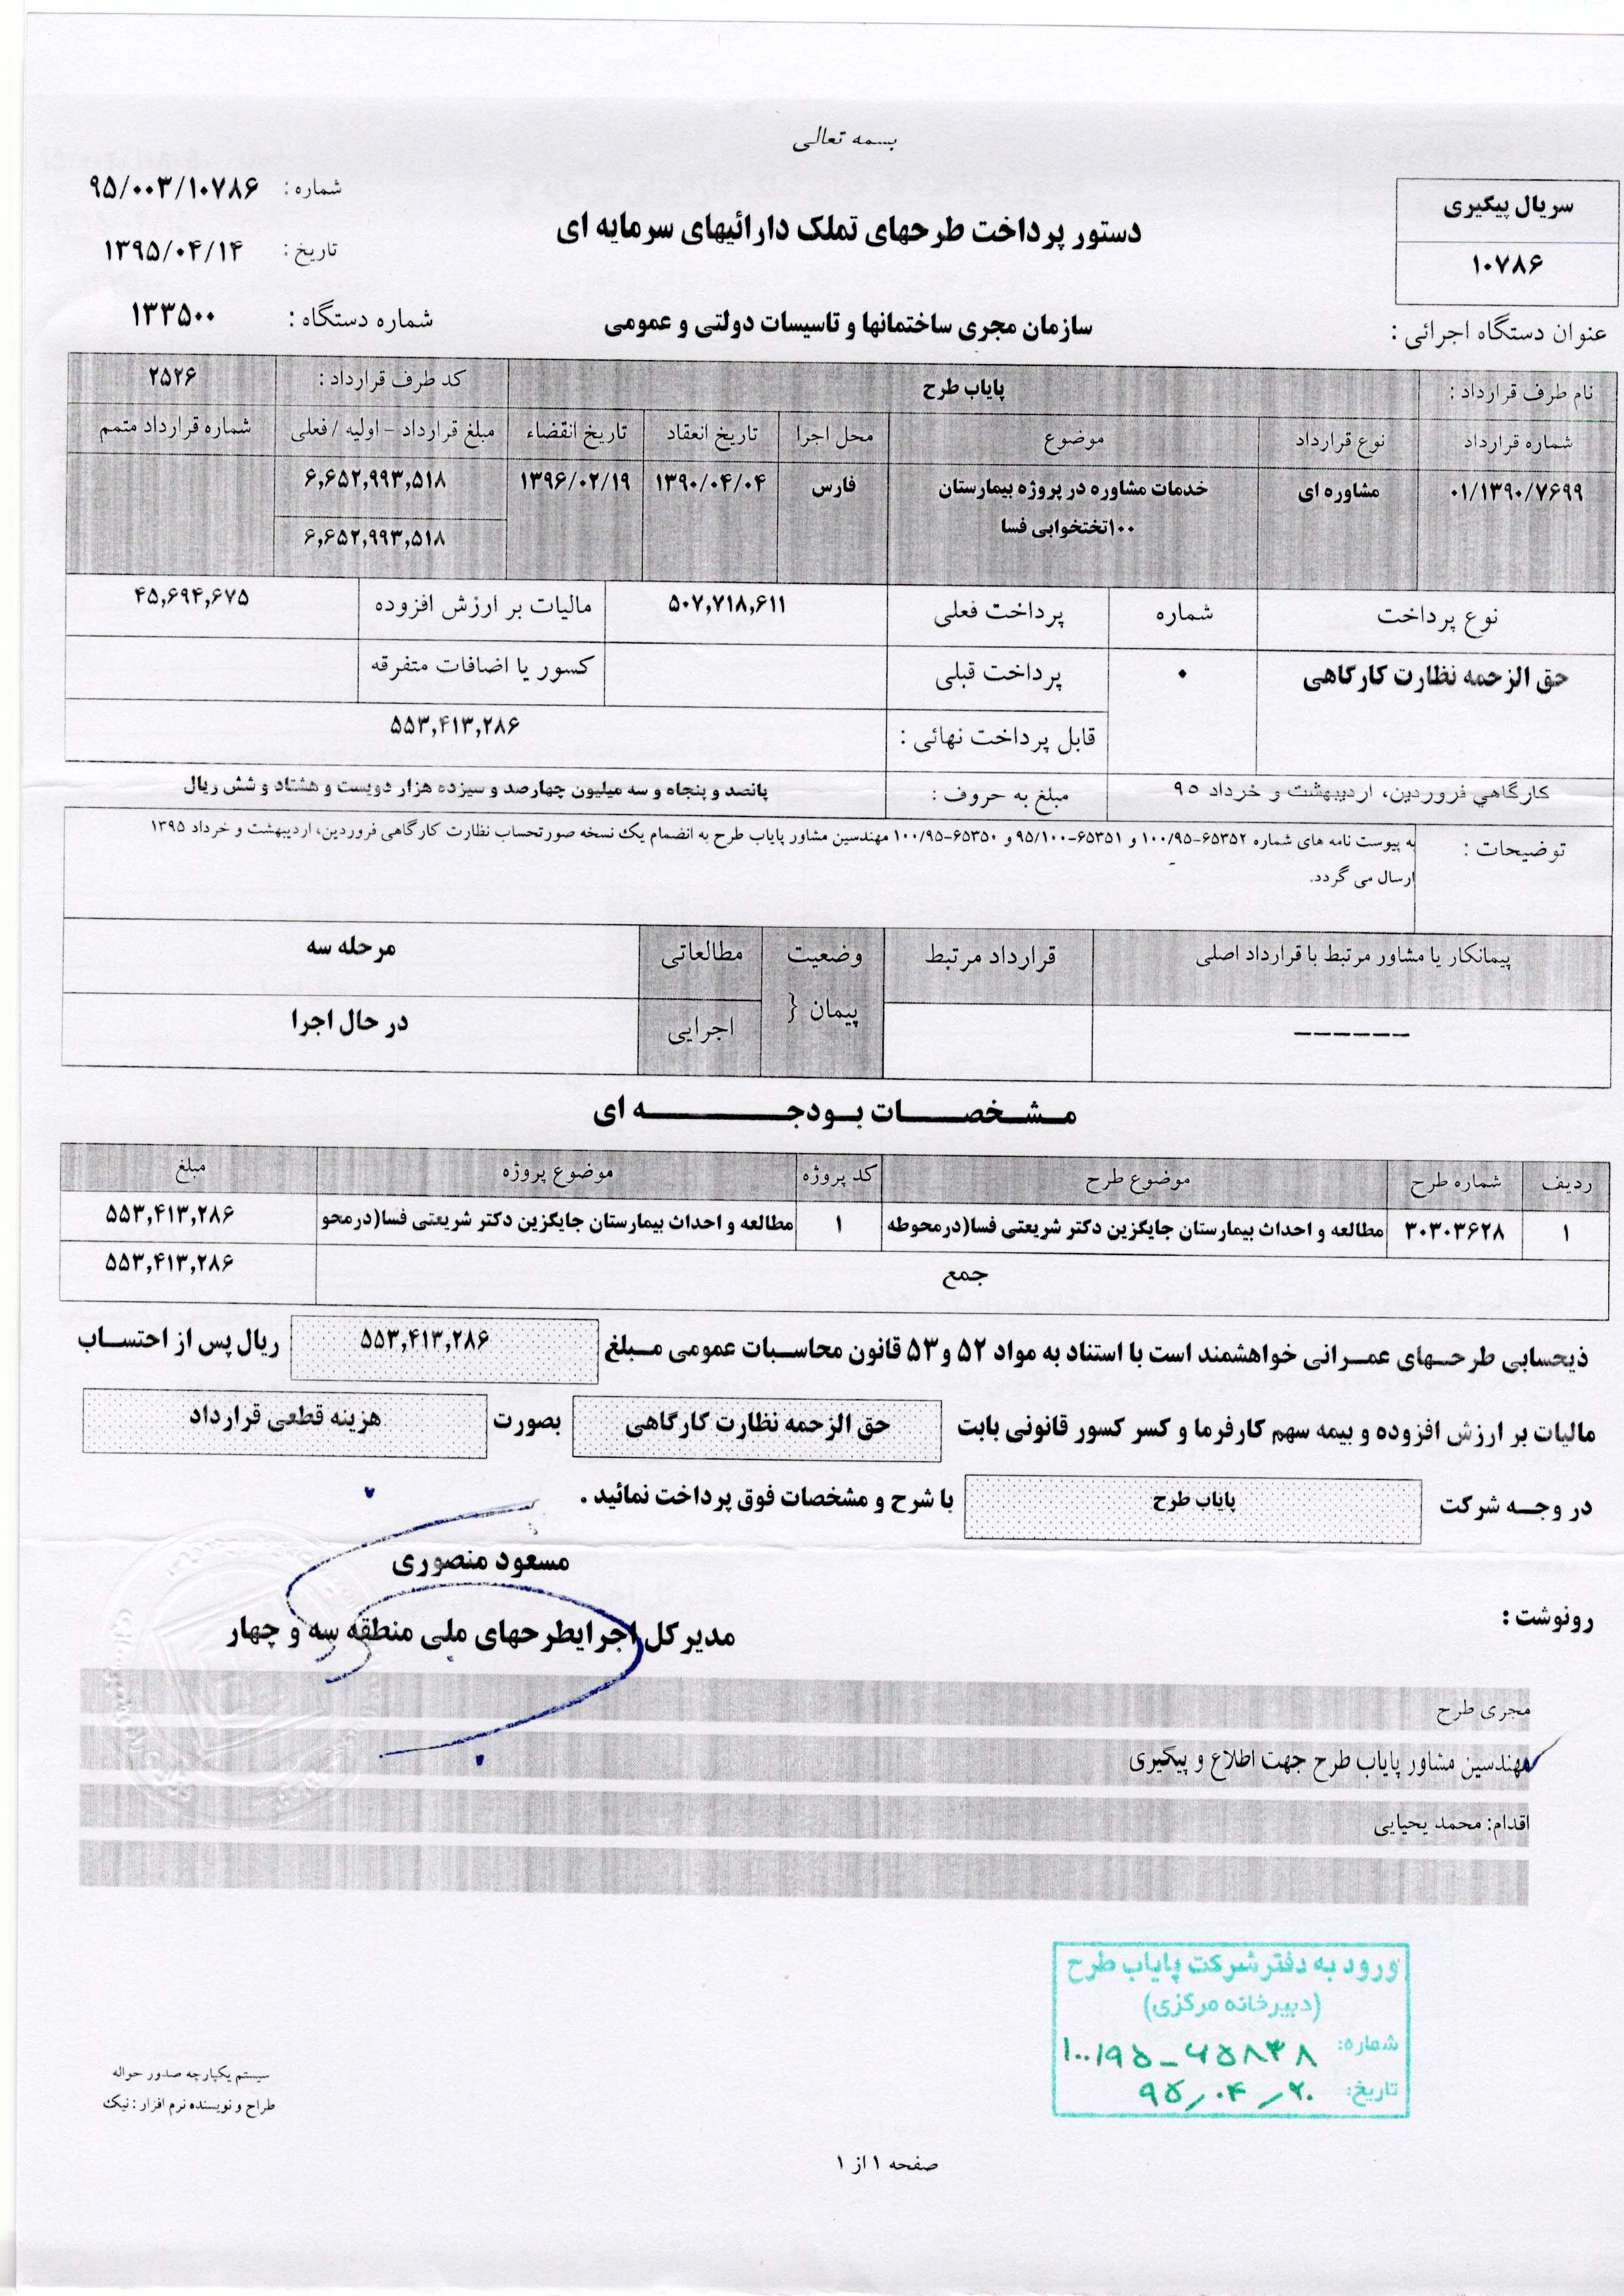 بسمه تعالی
سریال پیگیری
۱۰۷۸۶
دستور پرداخت طرحهای تملک دارائیهای سرمایه ای
شماره : ۹۵/۰۰۳/۱۰۷۸۶
تاریخ : ۱۳۹۵/۰۴/۱۴
عنوان دستگاه اجرائی : سازمان مجری ساختمانها و تاسیسات دولتی و عمومی شماره دستگاه : ۱۳۳۵۰۰
نام طرف قرارداد : پایاب طرح کد طرف قرارداد : ۲۵۲۶
شماره قرارداد نوع قرارداد موضوع محل اجرا تاریخ انعقاد تاریخ انقضاء مبلغ قرارداد - اولیه / فعلی شماره قرارداد متمم
۰۱/۱۳۹۰/۷۶۹۹ مشاوره ای خدمات مشاوره در پروژه بیمارستان فارس ۱۳۹۰/۰۴/۰۴ ۱۳۹۶/۰۲/۱۹ ۶,۶۵۲,۹۹۳,۵۱۸
۱۰۰تختخوابی فسا ۶,۶۵۲,۹۹۳,۵۱۸
نوع پرداخت شماره پرداخت فعلی ۵۰۷,۷۱۸,۶۱۱ مالیات بر ارزش افزوده ۴۵,۶۹۴,۶۷۵
حق الزحمه نظارت کارگاهی ۰ پرداخت قبلی کسور یا اضافات متفرقه
قابل پرداخت نهائی : ۵۵۳,۴۱۳,۲۸۶
کارگاهي فروردين، ارديبهشت و خرداد ۹۵ مبلغ به حروف : پانصد و پنجاه و سه میلیون چهارصد و سیزده هزار دویست و هشتاد و شش ریال
توضیحات : به پیوست نامه های شماره ۶۵۳۵۲-۱۰۰/۹۵ و ۶۵۳۵۱-۹۵/۱۰۰ و ۶۵۳۵۰-۱۰۰/۹۵ مهندسین مشاور پایاب طرح به انضمام یک نسخه صورتحساب نظارت کارگاهی فروردین، اردیبهشت و خرداد ۱۳۹۵
ارسال می گردد.
پیمانکار یا مشاور مرتبط با قرارداد اصلی قرارداد مرتبط وضعیت مطالعاتی مرحله سه
------ پیمان { اجرایی در حال اجرا
مـشـخصـــات بـودجـــــــه ای
ردیف شماره طرح موضوع طرح کد پروژه موضوع پروژه مبلغ
۱ ۳۰۳۰۳۶۲۸ مطالعه و احداث بیمارستان جایگزین دکتر شریعتی فسا(درمحوطه ۱ مطالعه و احداث بیمارستان جایگزین دکتر شریعتی فسا(درمحو ۵۵۳,۴۱۳,۲۸۶
جمع ۵۵۳,۴۱۳,۲۸۶
ذیحسابی طرحــهای عمــرانی خواهشمند است با استناد به مواد ۵۲ و ۵۳ قانون محاسـبات عمومی مـبلغ ۵۵۳,۴۱۳,۲۸۶ ریال پس از احتســاب
مالیات بر ارزش افزوده و بیمه سهم کارفرما و کسر کسور قانونی بابت حق الزحمه نظارت کارگاهی بصورت هزینه قطعی قرارداد
در وجــه شرکت پایاب طرح با شرح و مشخصات فوق پرداخت نمائید .
مسعود منصوری
مدیر کل اجرایطرحهای ملی منطقه سه و چهار
رونوشت :
مجری طرح
مهندسین مشاور پایاب طرح جهت اطلاع و پیگیری
اقدام: محمد یحیایی
ورود به دفتر شرکت پایاب طرح
(دبیرخانه مرکزی)
شماره: ۱۰۰/۹۵-۶۵۸۳۸
تاریخ: ۹۵/۰۴/۲۰
سیستم یکپارچه صدور حواله
طراح و نویسنده نرم افزار : نیک
صفحه ۱ از ۱